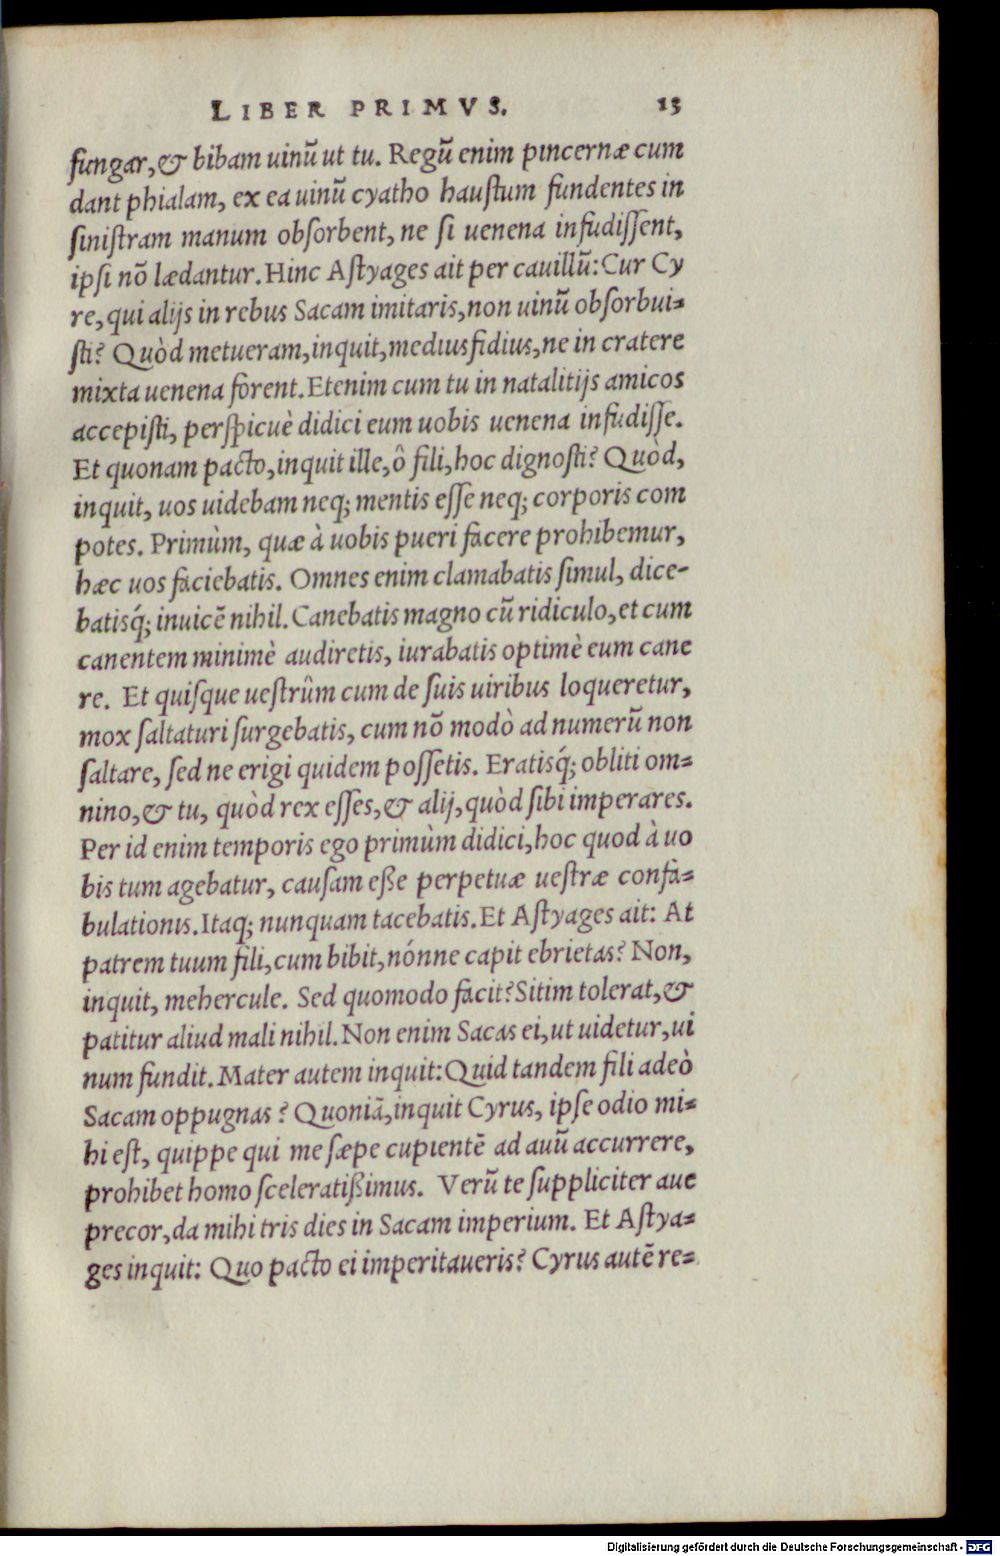 LIBER PRIMVS. 15
fungar, & bibam uinũ ut tu. Regũ enim pincernæ cum
dant phialam, ex ea uinũ cyatho haustum fundentes in
sinistram manum obsorbent, ne si uenena infudissent,
ipsi nõ lædantur. Hinc Astyages ait per cauillũ: Cur Cy
re, qui alijs in rebus Sacam imitaris, non uinũ obsorbui-
sti? Quòd metueram, inquit, mediusfidius, ne in cratere
mixta uenena forent. Etenim cum tu in natalitijs amicos
accepisti, perspicuè didici eum uobis uenena infudisse.
Et quonam pacto, inquit ille, ô fili, hoc dignosti? Quòd,
inquit, uos uidebam neq; mentis esse neq; corporis com
potes. Primùm, quæ à uobis pueri facere prohibemur,
hæc uos faciebatis. Omnes enim clamabatis simul, dice-
batisq́; inuicẽ nihil. Canebatis magno cũ ridiculo, et cum
canentem minimè audiretis, iurabatis optimè eum cane
re. Et quisque uestrûm cum de suis uiribus loqueretur,
mox saltaturi surgebatis, cum nõ modò ad numerũ non
saltare, sed ne erigi quidem possetis. Eratisq́; obliti om-
nino, & tu, quòd rex esses, & alij, quòd sibi imperares.
Per id enim temporis ego primùm didici, hoc quod à uo
bis tum agebatur, causam eße perpetuæ uestræ confa-
bulationis. Itaq; nunquam tacebatis. Et Astyages ait: At
patrem tuum fili, cum bibit, nónne capit ebrietas? Non,
inquit, mehercule. Sed quomodo facit? Sitim tolerat, &
patitur aliud mali nihil. Non enim Sacas ei, ut uidetur, ui
num fundit. Mater autem inquit: Quid tandem fili adeò
Sacam oppugnas? Quoniã, inquit Cyrus, ipse odio mi-
hi est, quippe qui me sæpe cupientẽ ad auũ accurrere,
prohibet homo sceleratißimus. Verũ te suppliciter aue
precor, da mihi tris dies in Sacam imperium. Et Astya-
ges inquit: Quo pacto ei imperitaueris? Cyrus autẽ re-
Digitalisierung gefördert durch die Deutsche Forschungsgemeinschaft - DFG